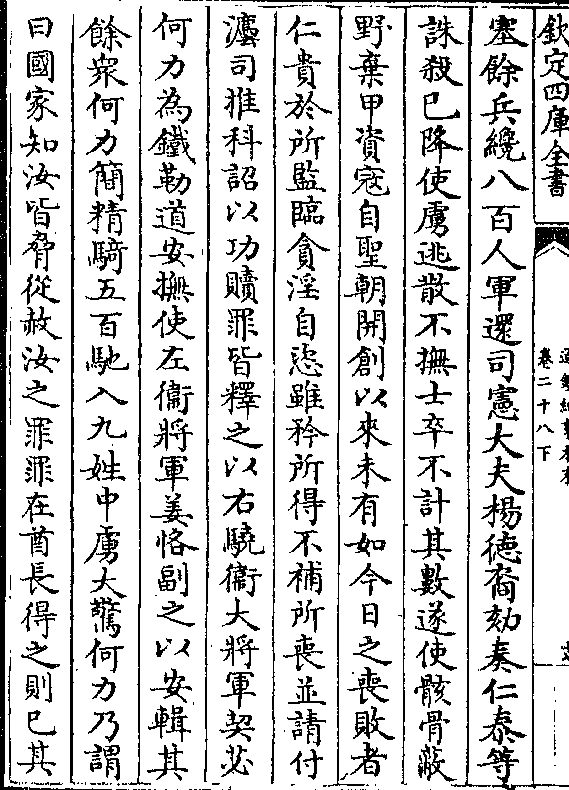 欽定四庫全書
卷二十八下
塞餘兵纔八百人軍還司憲大夫楊德裔劾奏仁泰等
誅殺已降使虜逃散不撫士卒不計其數遂使骸骨蔽
野棄甲資寇自聖朝開創以來未有如今日之喪敗者
仁貴於所監臨貪淫自恣雖矜所得不補所喪並請付
灋司推科詔以功贖罪皆釋之以右驍衞大將軍契苾
何力為鐵勒道安撫使左衞將軍姜恪副之以安輯其
餘衆何力簡精騎五百馳入九姓中虜大驚何力乃謂
曰國家知汝皆脅從赦汝之罪罪在酋長得之則已其